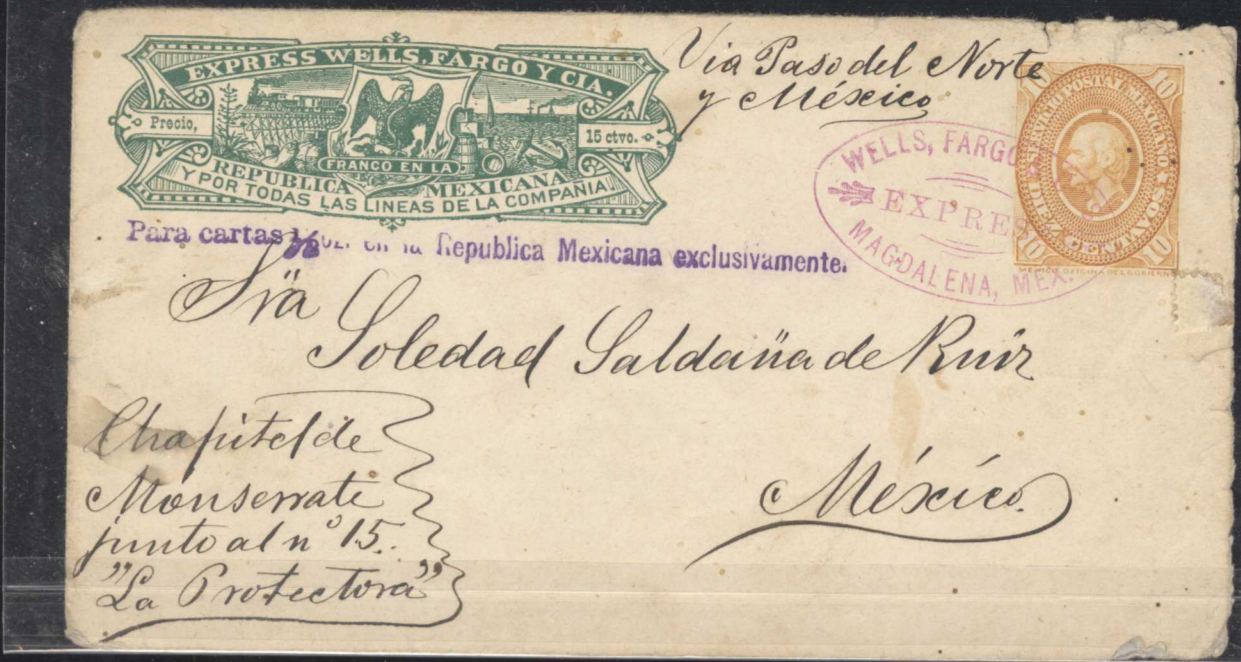 EXPRESS WELLS, FARGO Y CIA.
Precio, 15 ctvo.
FRANCO EN LA
REPUBLICA MEXICANA
Y POR TODAS LAS LINEAS DE LA COMPAÑIA.
Via Paso del Norte
y México
WELLS, FARGO
EXPRES
MAGDALENA, MEX.
10 10
SERVICIO POSTAL MEXICANO
DIEZ CENTAVOS
10 10
MEXICO OFICINA DEL GOBIERN
Para cartas ½ oz. en la Republica Mexicana exclusivamente.
Sra
Soledad Saldaña de Ruiz
Chapitel de
Monserrate
junto al nº 15.
"La Protectora"
México.